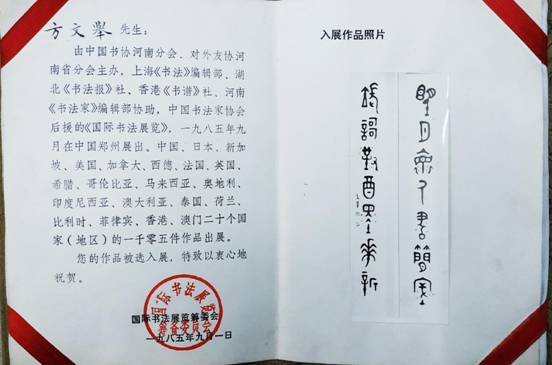 方文舉 先生：
由中国书协河南分会、对外友协河
南省分会主办，上海《书法》编辑部、湖
北《书法报》社、香港《书谱》社、河南
《书法家》编辑部协助，中国书法家协会
后援的《国际书法展览》，一九八五年九
月在中国郑州展出。中国、日本、新加
坡、美国、加拿大、西德、法国、英国、
希腊、哥伦比亚、马来西亚、奥地利、
印度尼西亚、澳大利亚、泰国、荷兰、
比利时、菲律宾、香港、澳门二十个国
家（地区）的一千零五件作品出展。
您的作品被选入展，特致以衷心地
祝贺。
国际书法展览
筹备委员会
国际书法展览筹委会
一九八五年九月一日
入展作品照片